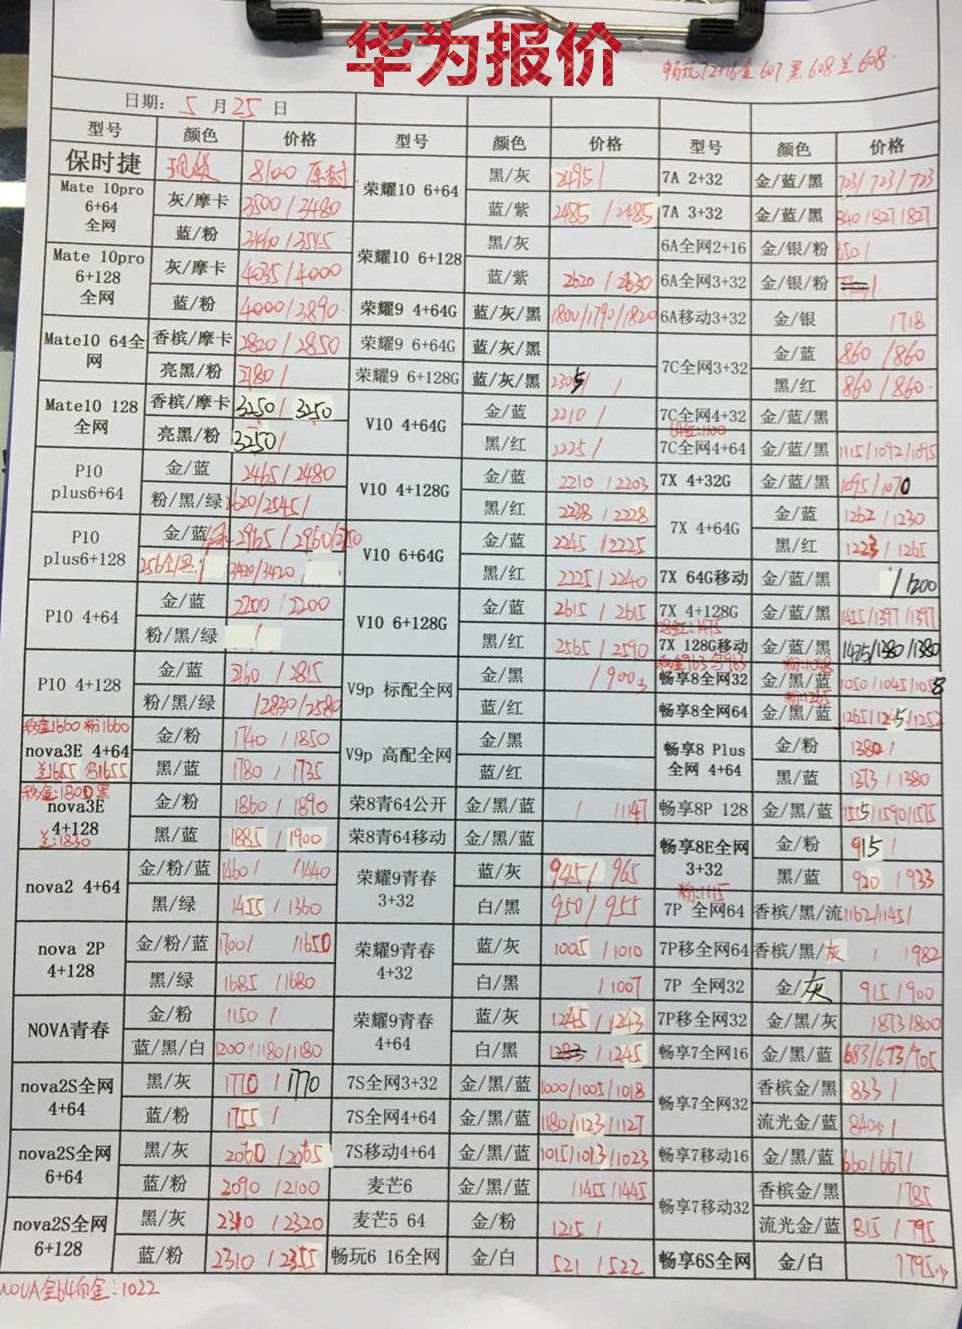 华为报价
608 兰 608
日期: 5 月 25 日
型号 颜色 价格 型号 颜色 价格 型号 颜色 价格
保时捷 8100 原封 荣耀10 6+64 黑/灰 2495/ 7A 2+32 金/蓝/黑 723/723/723
Mate 10pro 6+64 全网 灰/摩卡 3500/3480 蓝/紫 2485/2485 7A 3+32 金/蓝/黑 840/827/827
蓝/粉 3460/3545 荣耀10 6+128 黑/灰 6A全网2+16 金/银/粉 650/
Mate 10pro 6+128 全网 灰/摩卡 4035/4000 蓝/紫 2620/2630 6A全网3+32 金/银/粉
蓝/粉 4000/3890 荣耀9 4+64G 蓝/灰/黑 1800/1790/1820 6A移动3+32 金/银 /718
Mate10 64全网 香槟/摩卡 2820/2850 荣耀9 6+64G 蓝/灰/黑 7C全网3+32 金/蓝 860/860
亮黑/粉 3180/ 荣耀9 6+128G 蓝/灰/黑 2305/ / 黑/红 860/860
Mate10 128全网 香槟/摩卡 3250/3250 V10 4+64G 金/蓝 2210/ 7C全网4+32 金/蓝/黑
亮黑/粉 3250/ 黑/红 2225/ 7C全网4+64 金/蓝/黑 1115/1092/1095
P10 plus6+64 金/蓝 2465/2480 V10 4+128G 金/蓝 2210/2203 7X 4+32G 金/蓝/黑 1095/1070
粉/黑/绿 2620/2545/ 黑/红 2238/2228 7X 4+64G 金/蓝 1262/1230
P10 plus6+128 金/蓝 2965/2960 V10 6+64G 金/蓝 2245/2225 黑/红 1223/1265
3420/3420 黑/红 2225/2240 7X 64G移动 金/蓝/黑 /1200
P10 4+64 金/蓝 2200/2200 V10 6+128G 金/蓝 2615/2615 7X 4+128G 金/蓝/黑 1455/1397/1397
粉/黑/绿 / 黑/红 2565/2590 7X 128G移动 金/蓝/黑 1475/1380/1380
P10 4+128 金/蓝 /2815 V9p 标配全网 金/黑 /1900 畅享8全网32 金/黑/蓝 1050/1045/1058
粉/黑/绿 /2830/2580 蓝/红 畅享8全网64 金/黑/蓝 1265/1245/1252
金1600 粉1660
nova3E 4+64 金/粉 1740/1850 V9p 高配全网 金/黑 畅享8 Plus 全网 4+64 金/粉 1380/
兰1655 1655 黑/蓝 1780/1735 蓝/红 黑/蓝 1373/1380
nova3E 4+128 金/粉 1860/1890 荣8青64公开 金/黑/蓝 / /1147 畅享8P 128 金/黑/蓝 1515/1590/1575
兰:1830 黑/蓝 1885/1900 荣8青64移动 金/黑/蓝 畅享8E全网 3+32 金/粉 915/
nova2 4+64 金/粉/蓝 1460/ /1440 荣耀9青春 3+32 蓝/灰 945/965 黑/蓝 920/933
粉:1115
黑/绿 1455/1360 白/黑 950/955 7P 全网64 香槟/黑/流 1162/1145/
nova 2P 4+128 金/粉/蓝 1700/ /1650 荣耀9青春 4+32 蓝/灰 1005/1010 7P移全网64 香槟/黑/灰 / /982
黑/绿 1685/1680 白/黑 /1007 7P 全网32 金/灰 915/900
NOVA青春 金/粉 1150/ 荣耀9青春 4+64 蓝/灰 1245/1243 7P移全网32 金/黑/灰 /873/800
蓝/黑/白 1200/1180/1180 白/黑 /1245 畅享7全网16 金/黑/蓝 683/673/705
nova2S全网 4+64 黑/灰 1770/1770 7S全网3+32 金/黑/蓝 1000/1005/1018 畅享7全网32 香槟金/黑 833/
蓝/粉 1755/ 7S全网4+64 金/黑/蓝 1180/1123/1127 流光金/蓝 840/
nova2S全网 6+64 黑/灰 2060/2065 7S移动4+64 金/黑/蓝 1015/1013/1023 畅享7移动16 金/黑/蓝 660/667/
蓝/粉 2090/2100 麦芒6 金/黑/蓝 /1455/1445 畅享7移动32 香槟金/黑 /785
nova2S全网 6+128 黑/灰 2310/2320 麦芒5 64 金/粉 1215/ 流光金/蓝 815/795
蓝/粉 2310/2355 畅玩6 16全网 金/白 521/522 畅享6S全网 金/白 /795
NOVA全64白金:1022